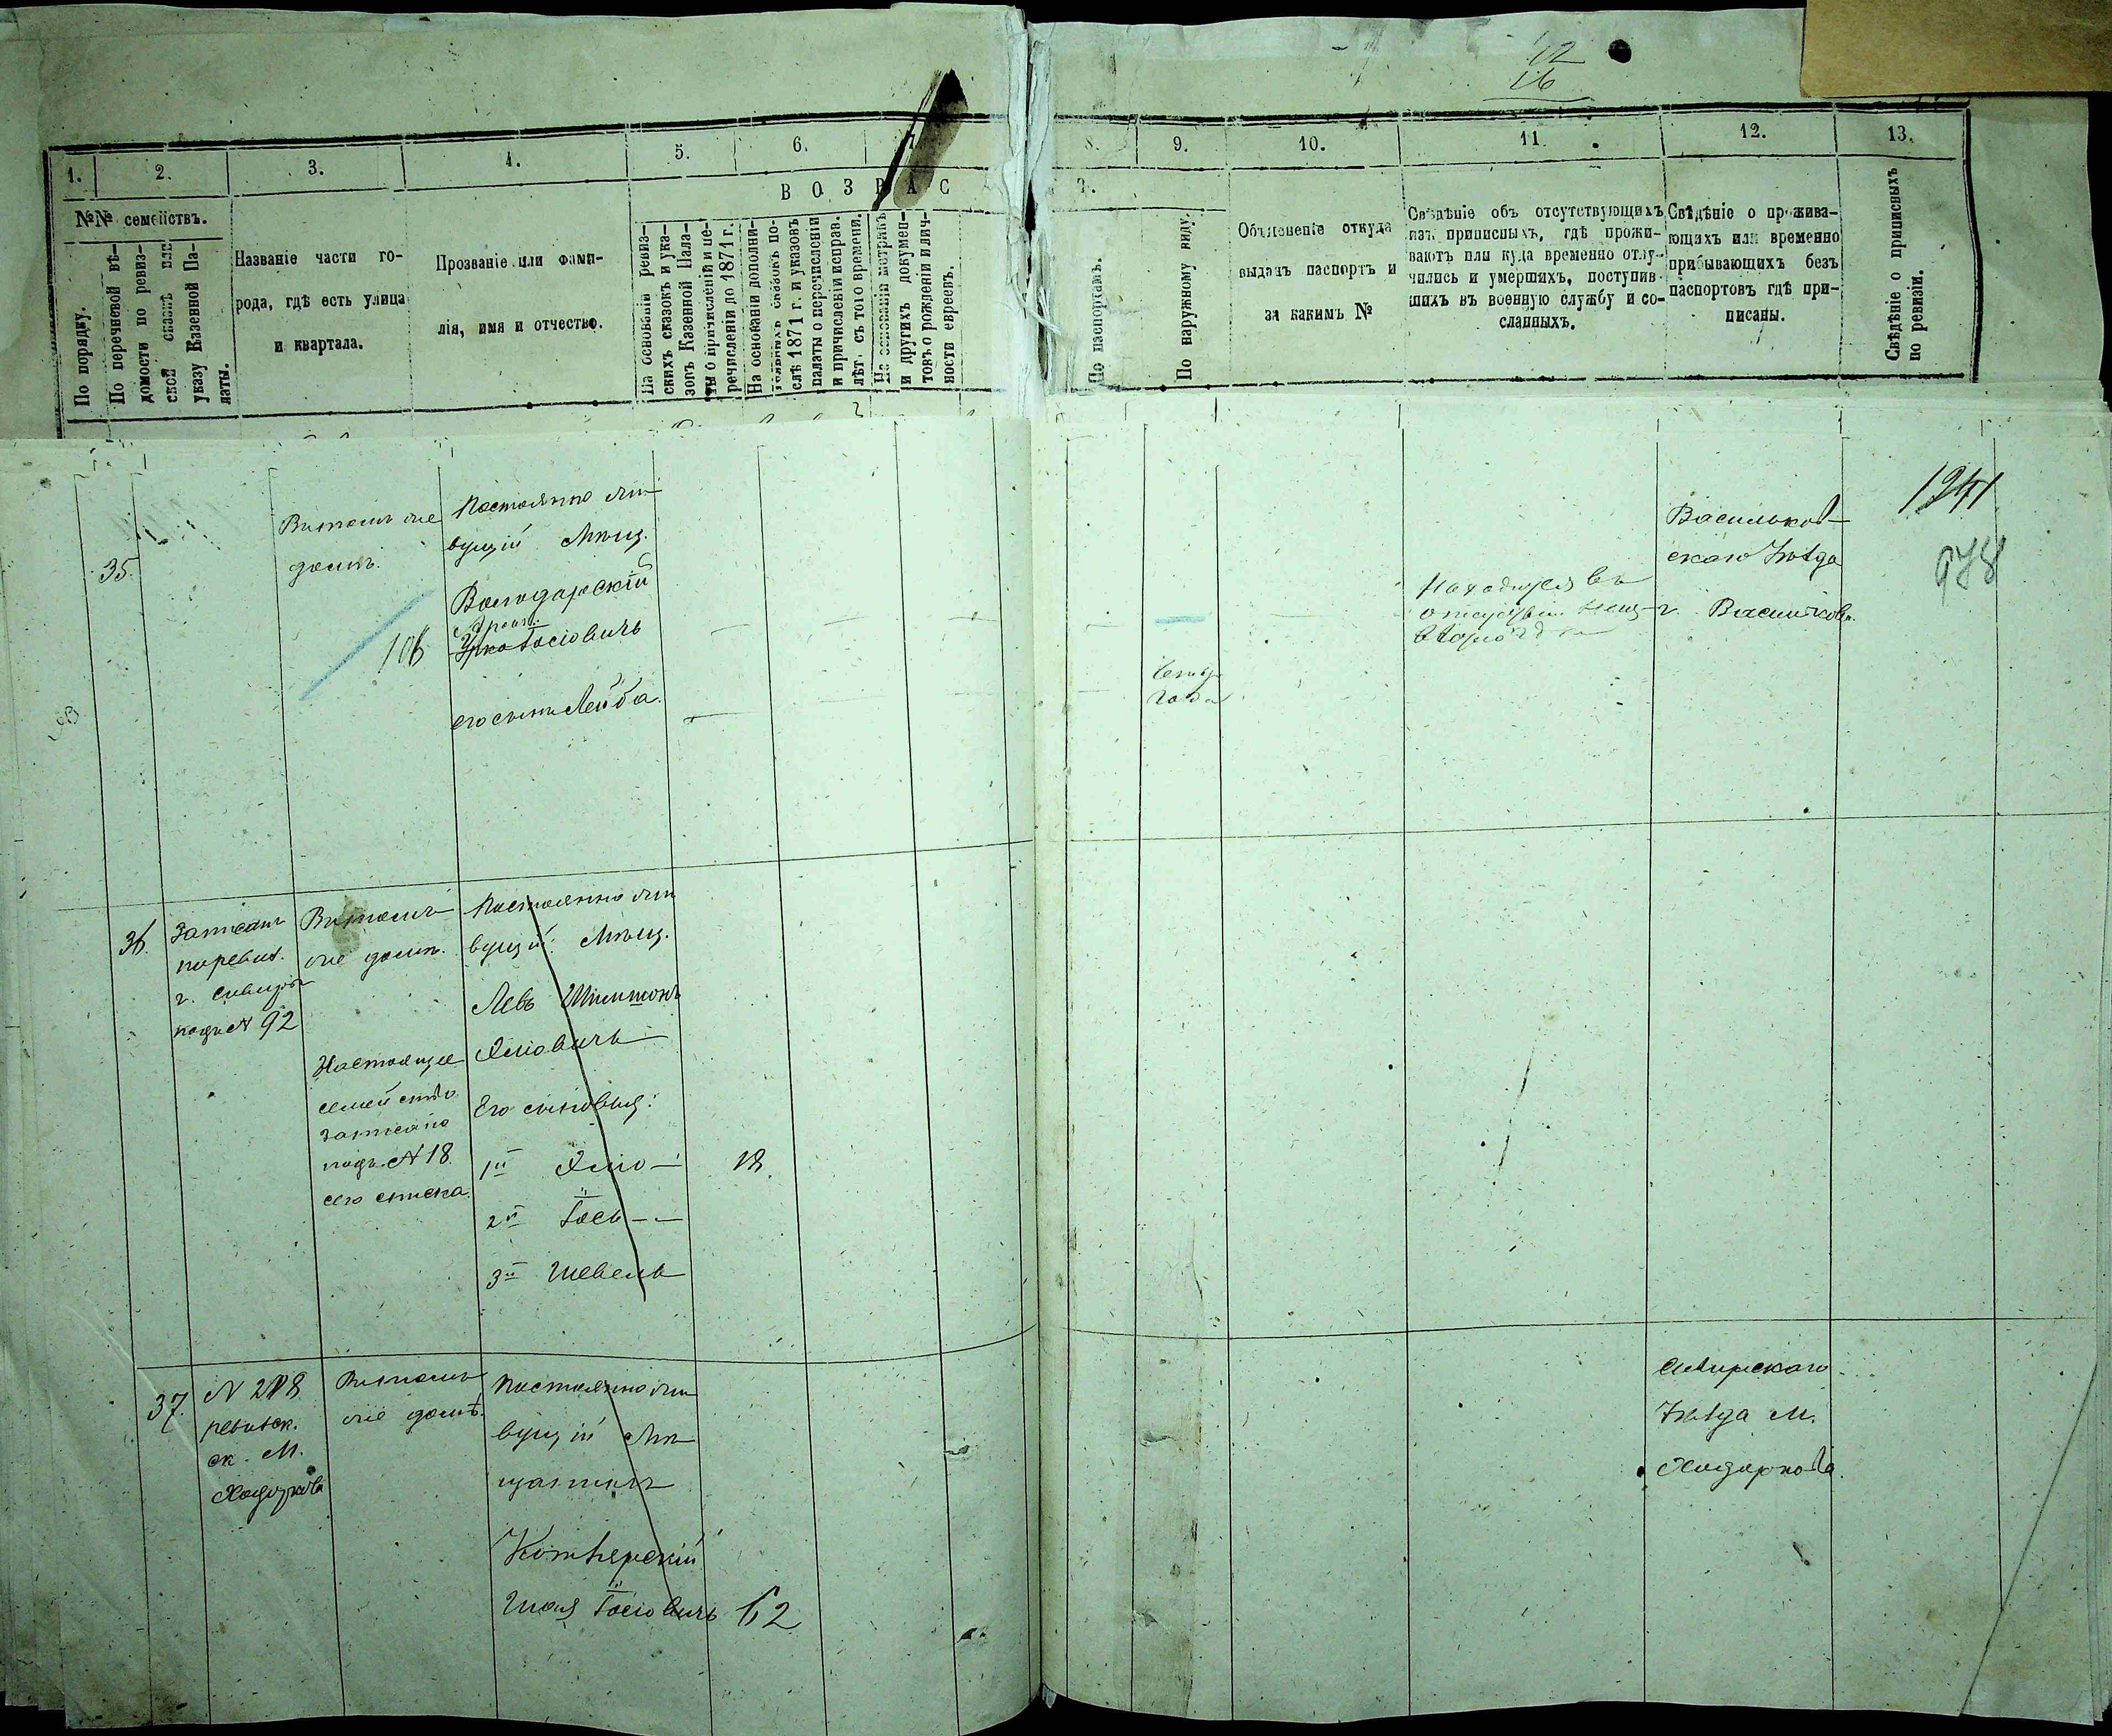 12
16
1.
2.
3.
4.
5.
6.
7.
8.
9.
10.
11.
12.
13.
№№ семействъ.
ВОЗРАС
Т.
По порядку.
По перечневой вѣ-
домости по ревиз-
ской сказкѣ или
указу Казенной Па-
латы.
Названіе части го-
рода, гдѣ есть улица
и квартала.
Прозваніе или фами-
лія, имя и отчество.
На основаніи ревиз-
скихъ сказокъ и ука-
зовъ Казенной Пала-
ты о причисленіи и пе-
речисленіи до 1871 г.
На основаніи дополни-
тельныхъ сказокъ по-
слѣ 1871 г. и указовъ
палаты о перечисленіи
и причисленіи исправ.
лѣт. съ того времени.
На основаніи метрикъ
и другихъ докумен-
товъ о рожденіи и лич-
ности евреевъ.
По паспортамъ.
По наружному виду.
Объясненіе откуда
выданъ паспортъ и
за какимъ №
Свѣдѣніе объ отсутствующихъ
изъ приписныхъ, гдѣ прожи-
ваютъ или куда временно отлу-
чились и умершихъ, поступив-
шихъ въ военную службу и со-
сланныхъ.
Свѣдѣніе о прожива-
ющихъ или временно
прибывающихъ безъ
паспортовъ гдѣ при-
писаны.
Свѣдѣніе о приписныхъ
по ревизіи.
35.
домъ.
106
Постоянно жи-
вущій Мѣщ.
Володарскій
Іосіовичъ
его сынъ Лейба.
года
Находится въ
Васильков-
скаго Уѣзда
г. Васильковъ.
1241
978
36.
Записанъ
по ревиз.
г. Сквиры
подъ № 92
домѣ.
Настоящее
семейство
записано
подъ № 18
сего списка.
Постоянно жи
вущій Мѣщ.
Левъ Шимшонъ
Его сыновья:
1й
18.
2й Іось
3й Шевель
37.
№ 218
ревизск.
ск. М.
Ходоркова
домѣ.
Постоянно жи
вущій Мѣ
щанинъ
Шая Іосіовичъ
62
Сквирскаго
Уѣзда М.
Ходоркова.